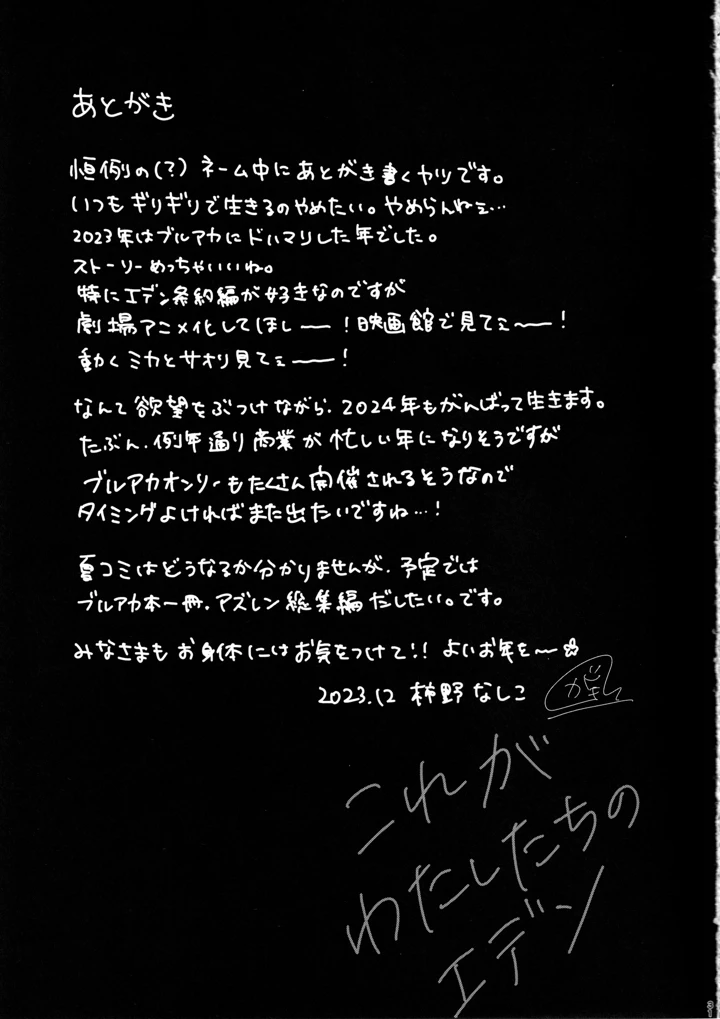 あとがき
恒例の(?) ネーム中にあとがき書くヤツです。
いつもギリギリで生きるのやめたい。やめらんねェ…
2023年はブルアカにドハマりした年でした。
ストーリーめっちゃいいね。
特にエデン条約編が好きなのですが
劇場アニメ化してほしー!映画館で見てェ〜ー!
動くミカとサオリ見てェーー!
なんて欲望をぶつけながら、2024年もがんばって生きます。
たぶん、例年通り商業が忙しい年になりそうですが
ブルアカオンリーもたくさん開催されるそうなので
タイミングよければまた出たいですね…!
夏コミはどうなるか分かりませんが、予定では
ブルアカ本一冊、アズレン総集編だしたい。です。
みなさまもお身体にはお気をつけて!! よいお年を〜☆
2023.12 柿野なしこ
これが
わたしたちの
エデン